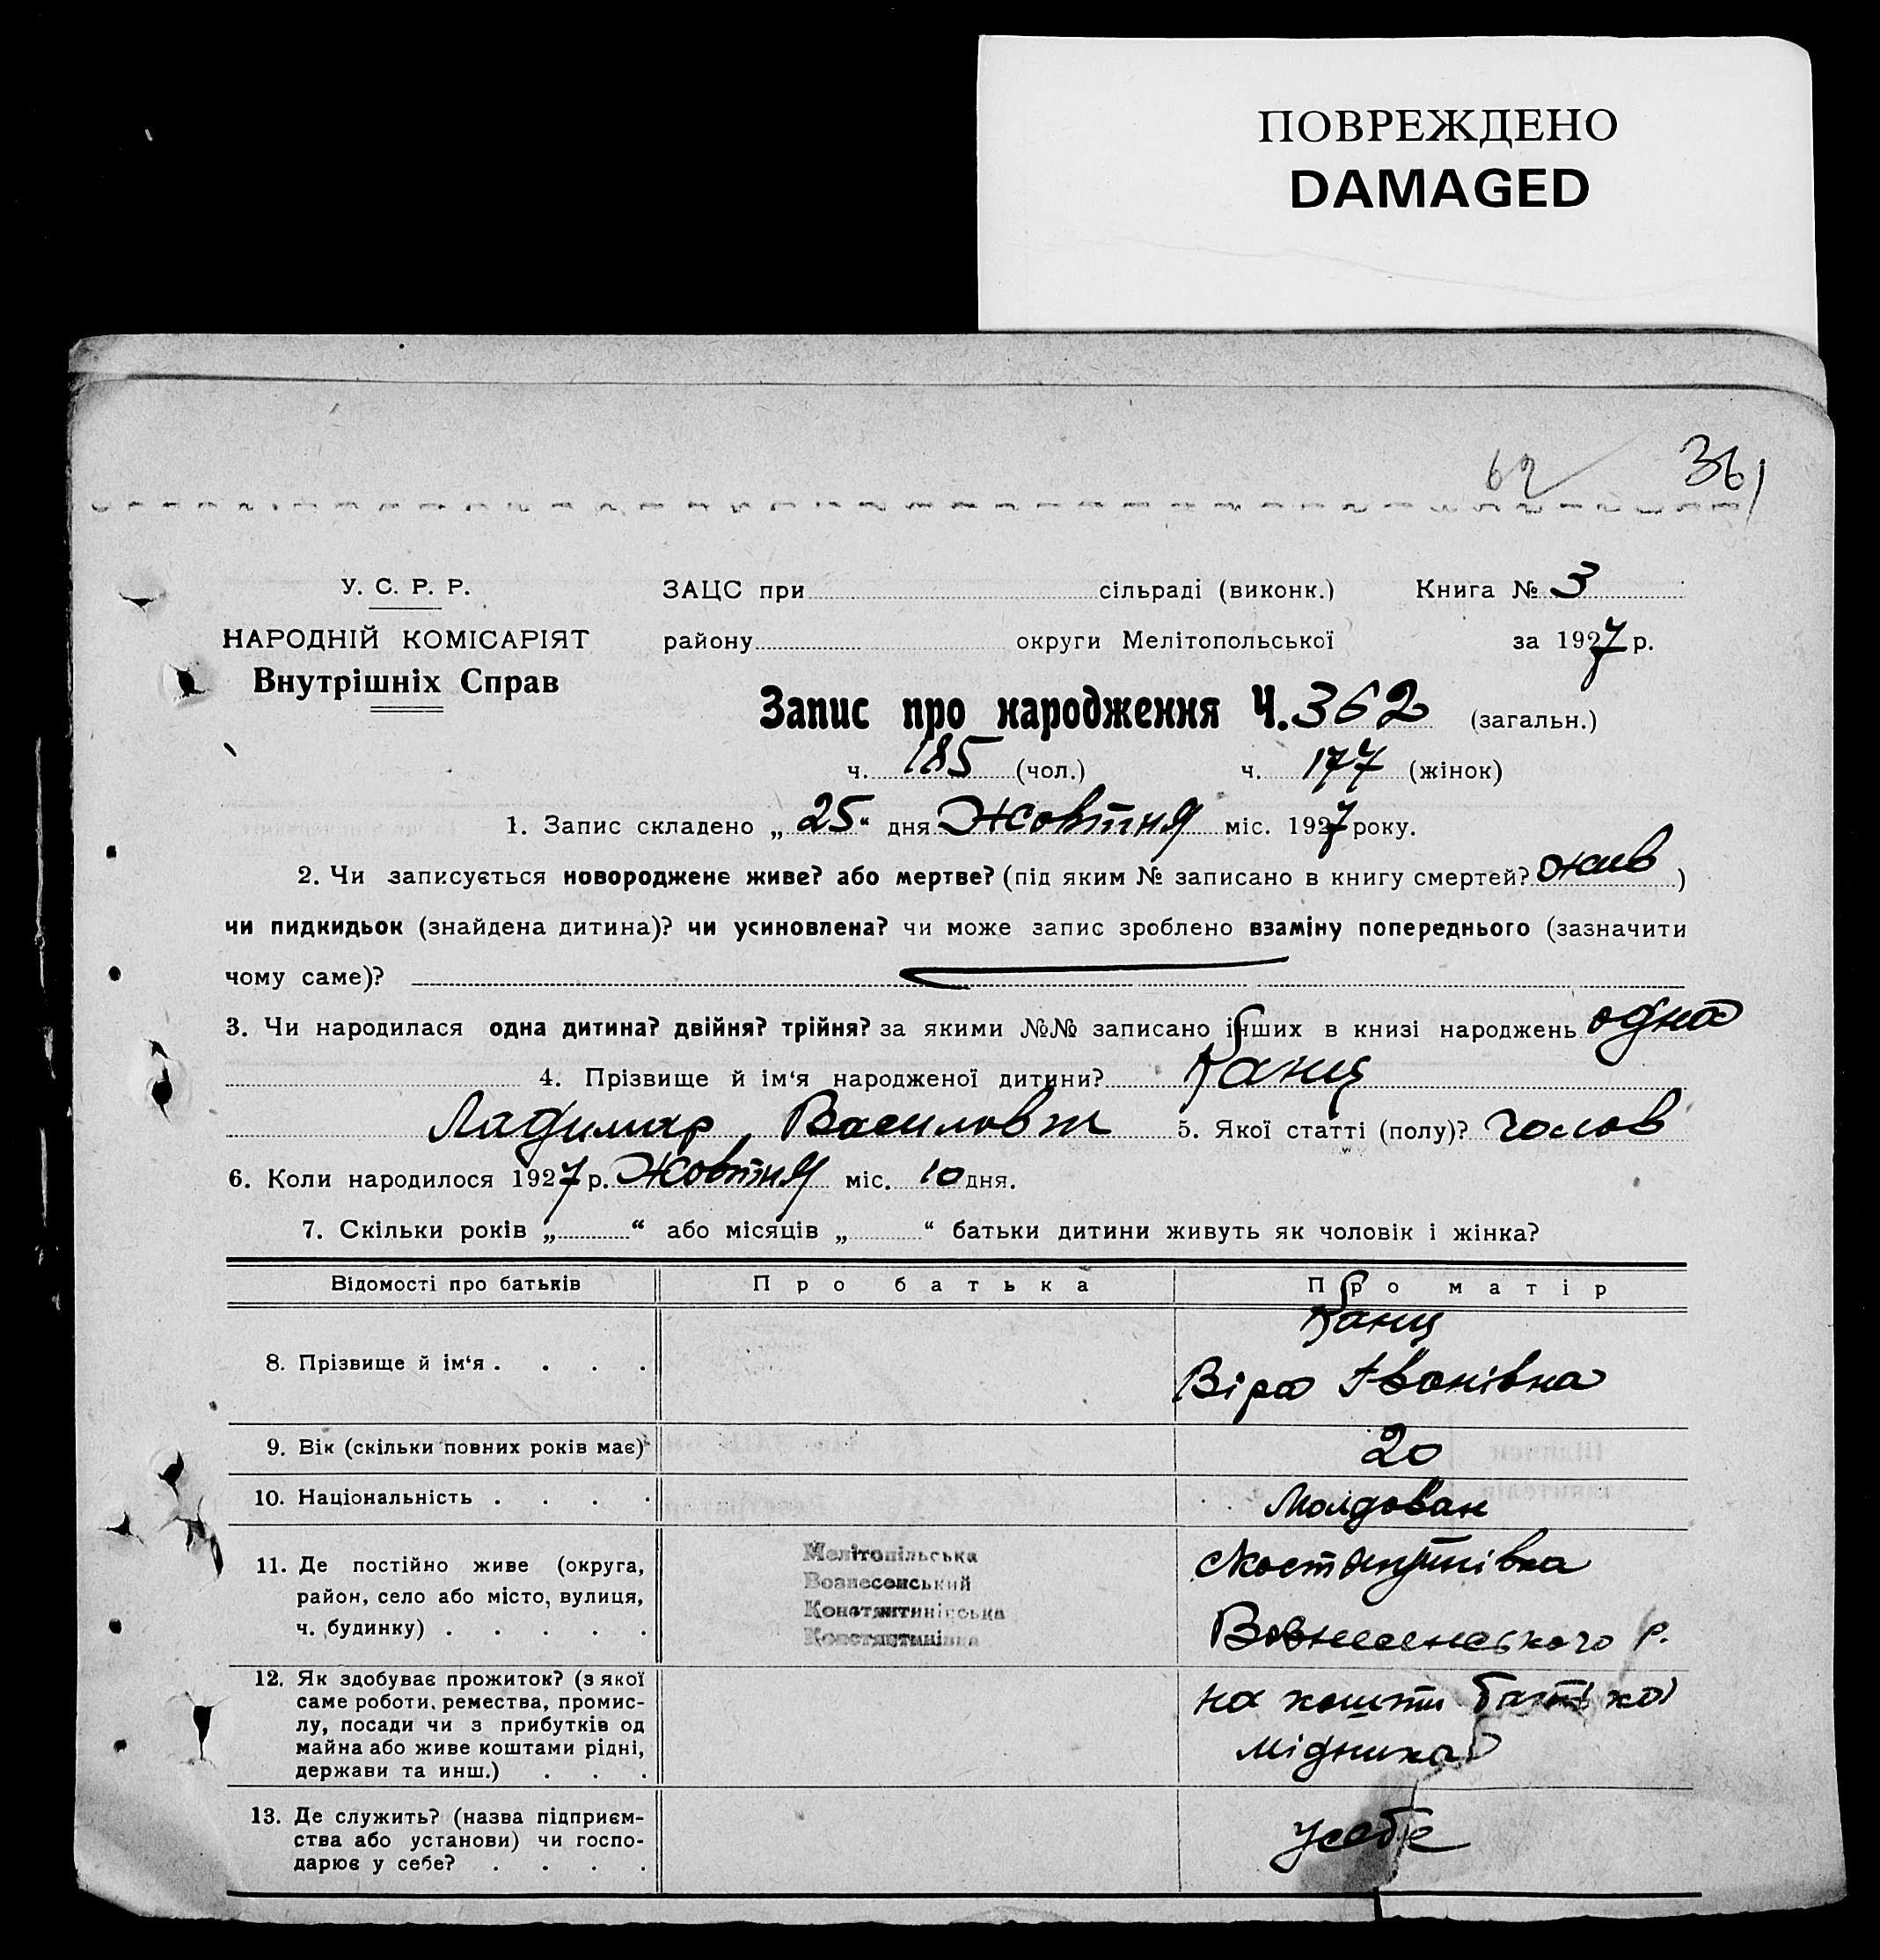 ПОВРЕЖДЕНО
DAMAGED
62 361
У. С. Р. Р. ЗАЦС при сільраді (виконк.) Книга № 3
НАРОДНІЙ КОМІСАРІЯТ району округи Мелітопольської за 1927 р.
Внутрішніх Справ
Запис про народження Ч. 362 (загальн.)
ч. 185 (чол.) ч. 177 (жінок)
1. Запис складено „ 25 “ дня Жовтня міс. 1927 року.
2. Чи записується новороджене живе? або мертве? (під яким № записано в книгу смертей? жив )
чи пидкидьок (знайдена дитина)? чи усиновлена? чи може запис зроблено взаміну попереднього (зазначити
чому саме)?
3. Чи народилася одна дитина? двійня? трійня? за якими №№ записано інших в книзі народжень одна
4. Прізвище й ім‘я народженої дитини? Ранц
Ладимир Василовт 5. Якої статті (полу)? Чолов
6. Коли народилося 1927 р. Жовтня міс. 10 дня.
7. Скільки років „ “ або місяців „ “ батьки дитини живуть як чоловік і жінка?
Відомості про батьків Про батька Про матір
Ранц
8. Прізвище й ім‘я . . . . Віра Іванівна
9. Вік (скільки повних років має) 20
10. Національність . . . . Молдован
11. Де постійно живе (округа, Мелітопільська
район, село або місто, вулиця, Вознесенський
ч. будинку) . . . . . Константинівська
Константинівка Вовнесенського р.
12. Як здобуває прожиток? (з якої
саме роботи, ремества, промис- на кошти батька
лу, посади чи з прибутків од
майна або живе коштами рідні, мідника
держави та инш.) . . .
13. Де служить? (назва підприєм-
ства або установи) чи госпо- у себе
дарює у себе? . . . .